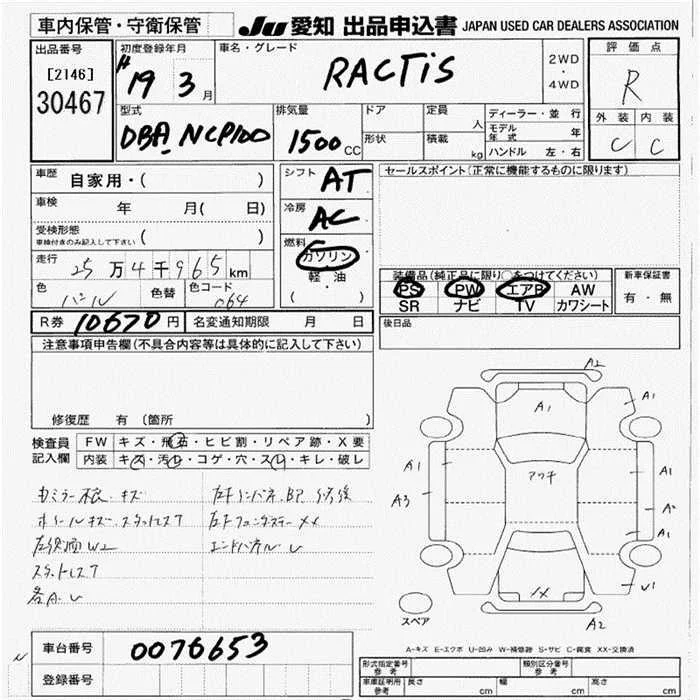 車内保管・守衛保管 JU 愛知 出品申込書 JAPAN USED CAR DEALERS ASSOCIATION
出品番号 初度登録年月 車名・グレード 評価点
[2146] H 19 3 月 RACTiS 2WD・4WD R
30467
型式 排気量 ドア 定員 人 ディーラー・並行 外装 内装
DBA NCP100 1500 CC 形状 積載 kg モデル年式 年 C C
ハンドル 左・右
車歴 自家用・( ) シフト AT セールスポイント(正常に機能するものに限ります)
車検 年 月( 日) 冷房 AC
受検形態 ( )
車検付きのみ記入して下さい
走行 25万4千965km 燃料 ガソリン
軽・油
( )
色 パール 色替 色コード 064
装備品(純正品に限り○をつけてください) 新車保証書
PS PW エアB AW 有・無
SR ナビ TV カワシート
R券 10670円 名変通知期限 月 日 後日品
注意事項申告欄(不具合内容等は具体的に記入して下さい)
修復歴 有 (箇所 )
検査員 FW キズ・飛石・ヒビ割・リペア跡・X要
記入欄 内装 キズ・汚レ・コゲ・穴・スレ・キレ・破レ
A2
A1 A1
A1 アウチ A1
A3
A1
X U1
スペア A2
エンドパネル U
左後 W2
各A.U
A-キズ E-エクボ U-凹み W-補修跡 S-サビ C-腐食 XX-交換済
車台番号 0076653
登録番号
形式指定番号 参考 類別区分番号 参考
車庫証明用 参考 長さ cm 幅 cm 高さ cm